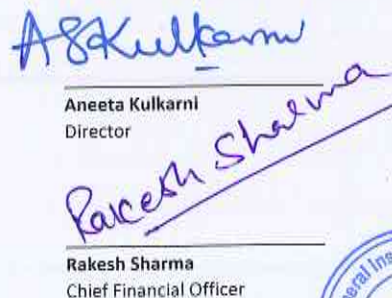 ASKulkarni
Aneeta Kulkarni
Director
Rakesh Sharma
Rakesh Sharma
Chief Financial Officer
eral Ins